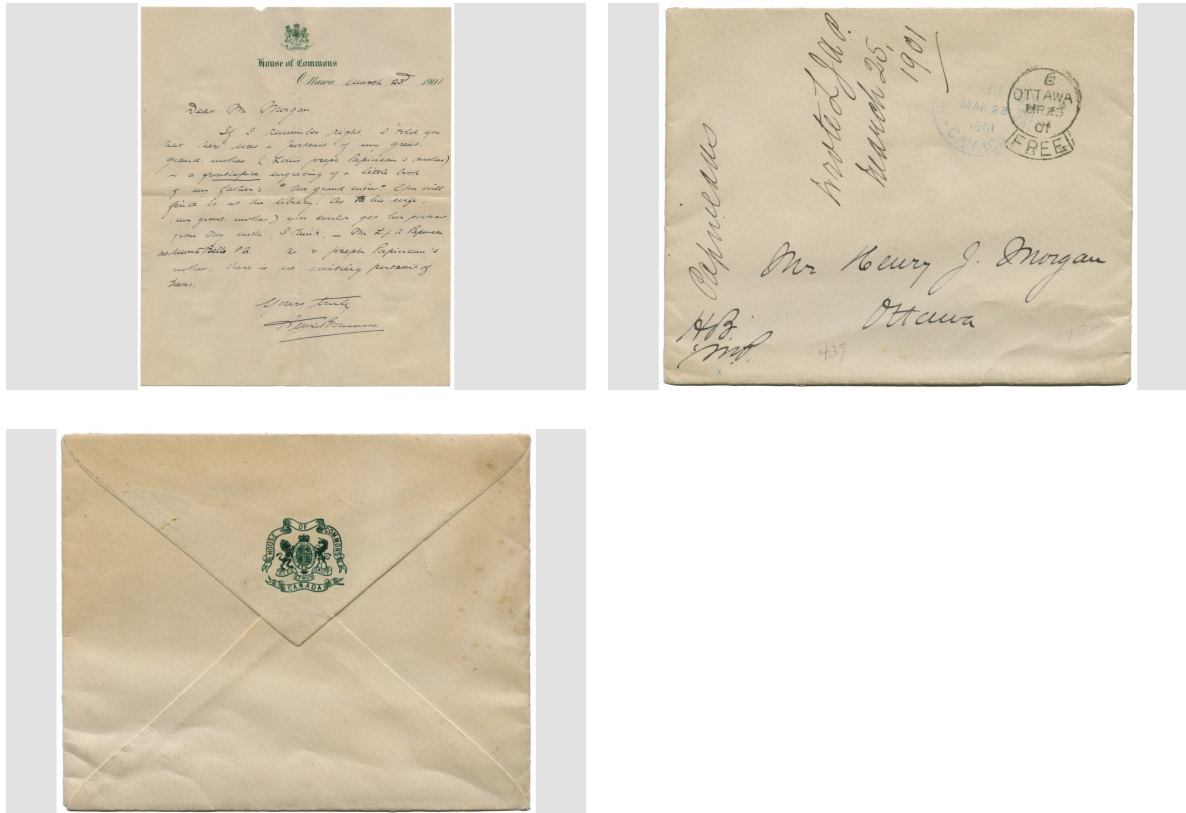 House of Commons
Ottawa March 23d 1901
Dear Mr Morgan
If I remember right, I told you
that there was a portrait of my great
grand mother (Louis Joseph Papineau's mother)
in a frontispiece engraving of a little book
of my father's "
grand
". You will
find it at the library. As to his wife,
my grand mother) you could get her portrait
from my uncle, I think, — Mr L. J. A. Papineau
at Monte Bello P.Q. As to Joseph Papineau's
mother, there is no existing portrait of
hers.
Yours truly
Henri Bourassa
Papineaus
wrote L.J.A.P.
March 25,
1901
MAR 23
1901
CANADA
6
OTTAWA
MR 23
01
FREE
Mr Henry J. Morgan
Ottawa
H.B.
M.P.
439
HOUSE OF COMMONS
CANADA